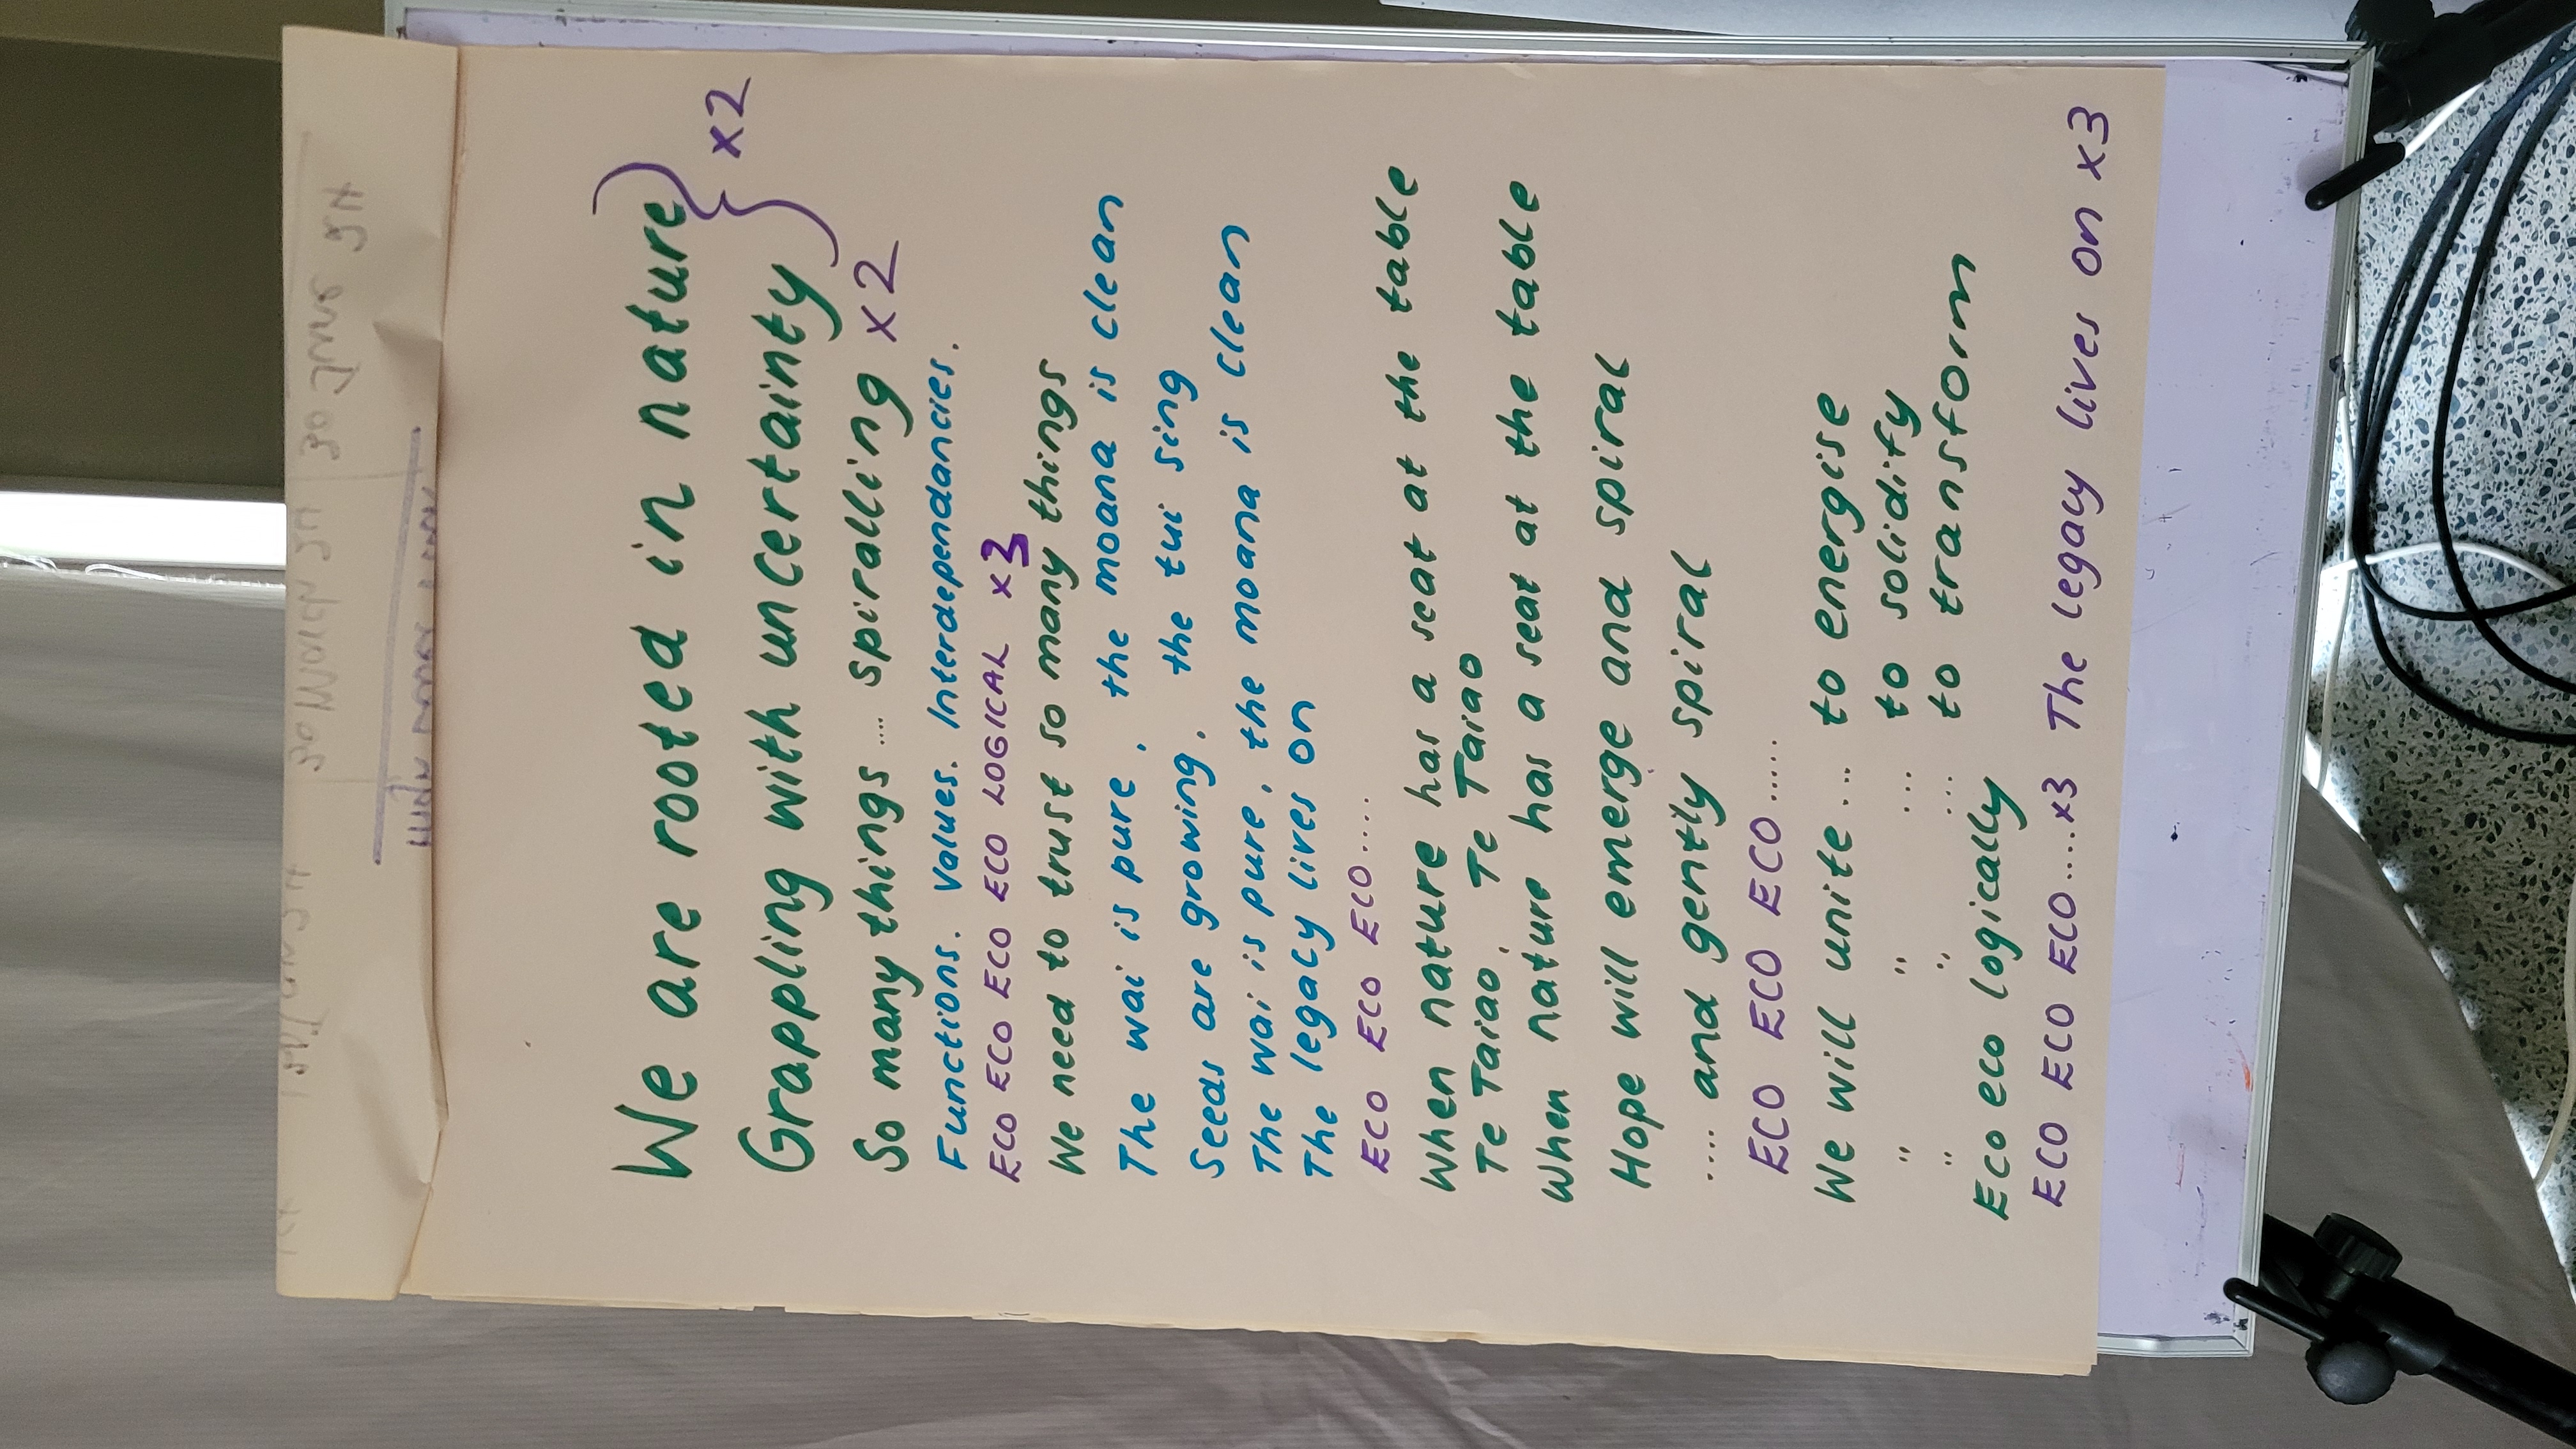 We are rooted in nature } x2
Grappling with uncertainty
So many things .... spiralling x2
Functions. Values. Interdependancies.
ECO ECO ECO ECO LOGICAL x3
We need to trust so many things
The wai is pure, the moana is clean
Seeds are growing, the tui sing
The wai is pure, the moana is clean
The legacy lives on
ECO ECO ECO ....
When nature has a seat at the table
Te Taiao, Te Taiao
When nature has a seat at the table
Hope will emerge and spiral
.... and gently spiral
ECO ECO ECO .....
We will unite ... to energise
" " ... to solidify
" " ... to transform
Eco eco logically
ECO ECO ECO ....x3 The legacy lives on x3